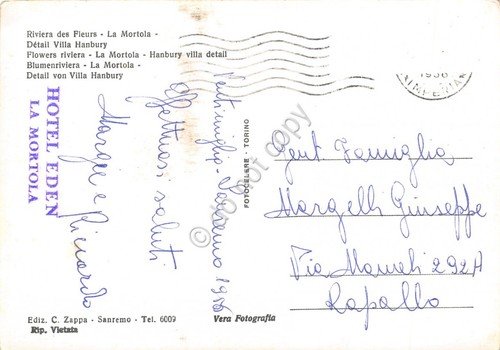 Riviera des Fleurs - La Mortola -
Détail Villa Hanbury
Flowers riviera - La Mortola - Hanbury villa detail
Blumenriviera - La Mortola -
Detail von Villa Hanbury
HOTEL EDEN
LA MORTOLA
Ventimiglia - Sanremo 1956
Affettuosi saluti
Margue e Riccardo
FOTOCELERE - TORINO
1956
IMPERIA
Gent Famiglia
Margelli Giuseppe
Via Mameli 292A
Rapallo
Ediz. C. Zappa - Sanremo - Tel. 6009
Vera Fotografia
Rip. Vietata
do not copy